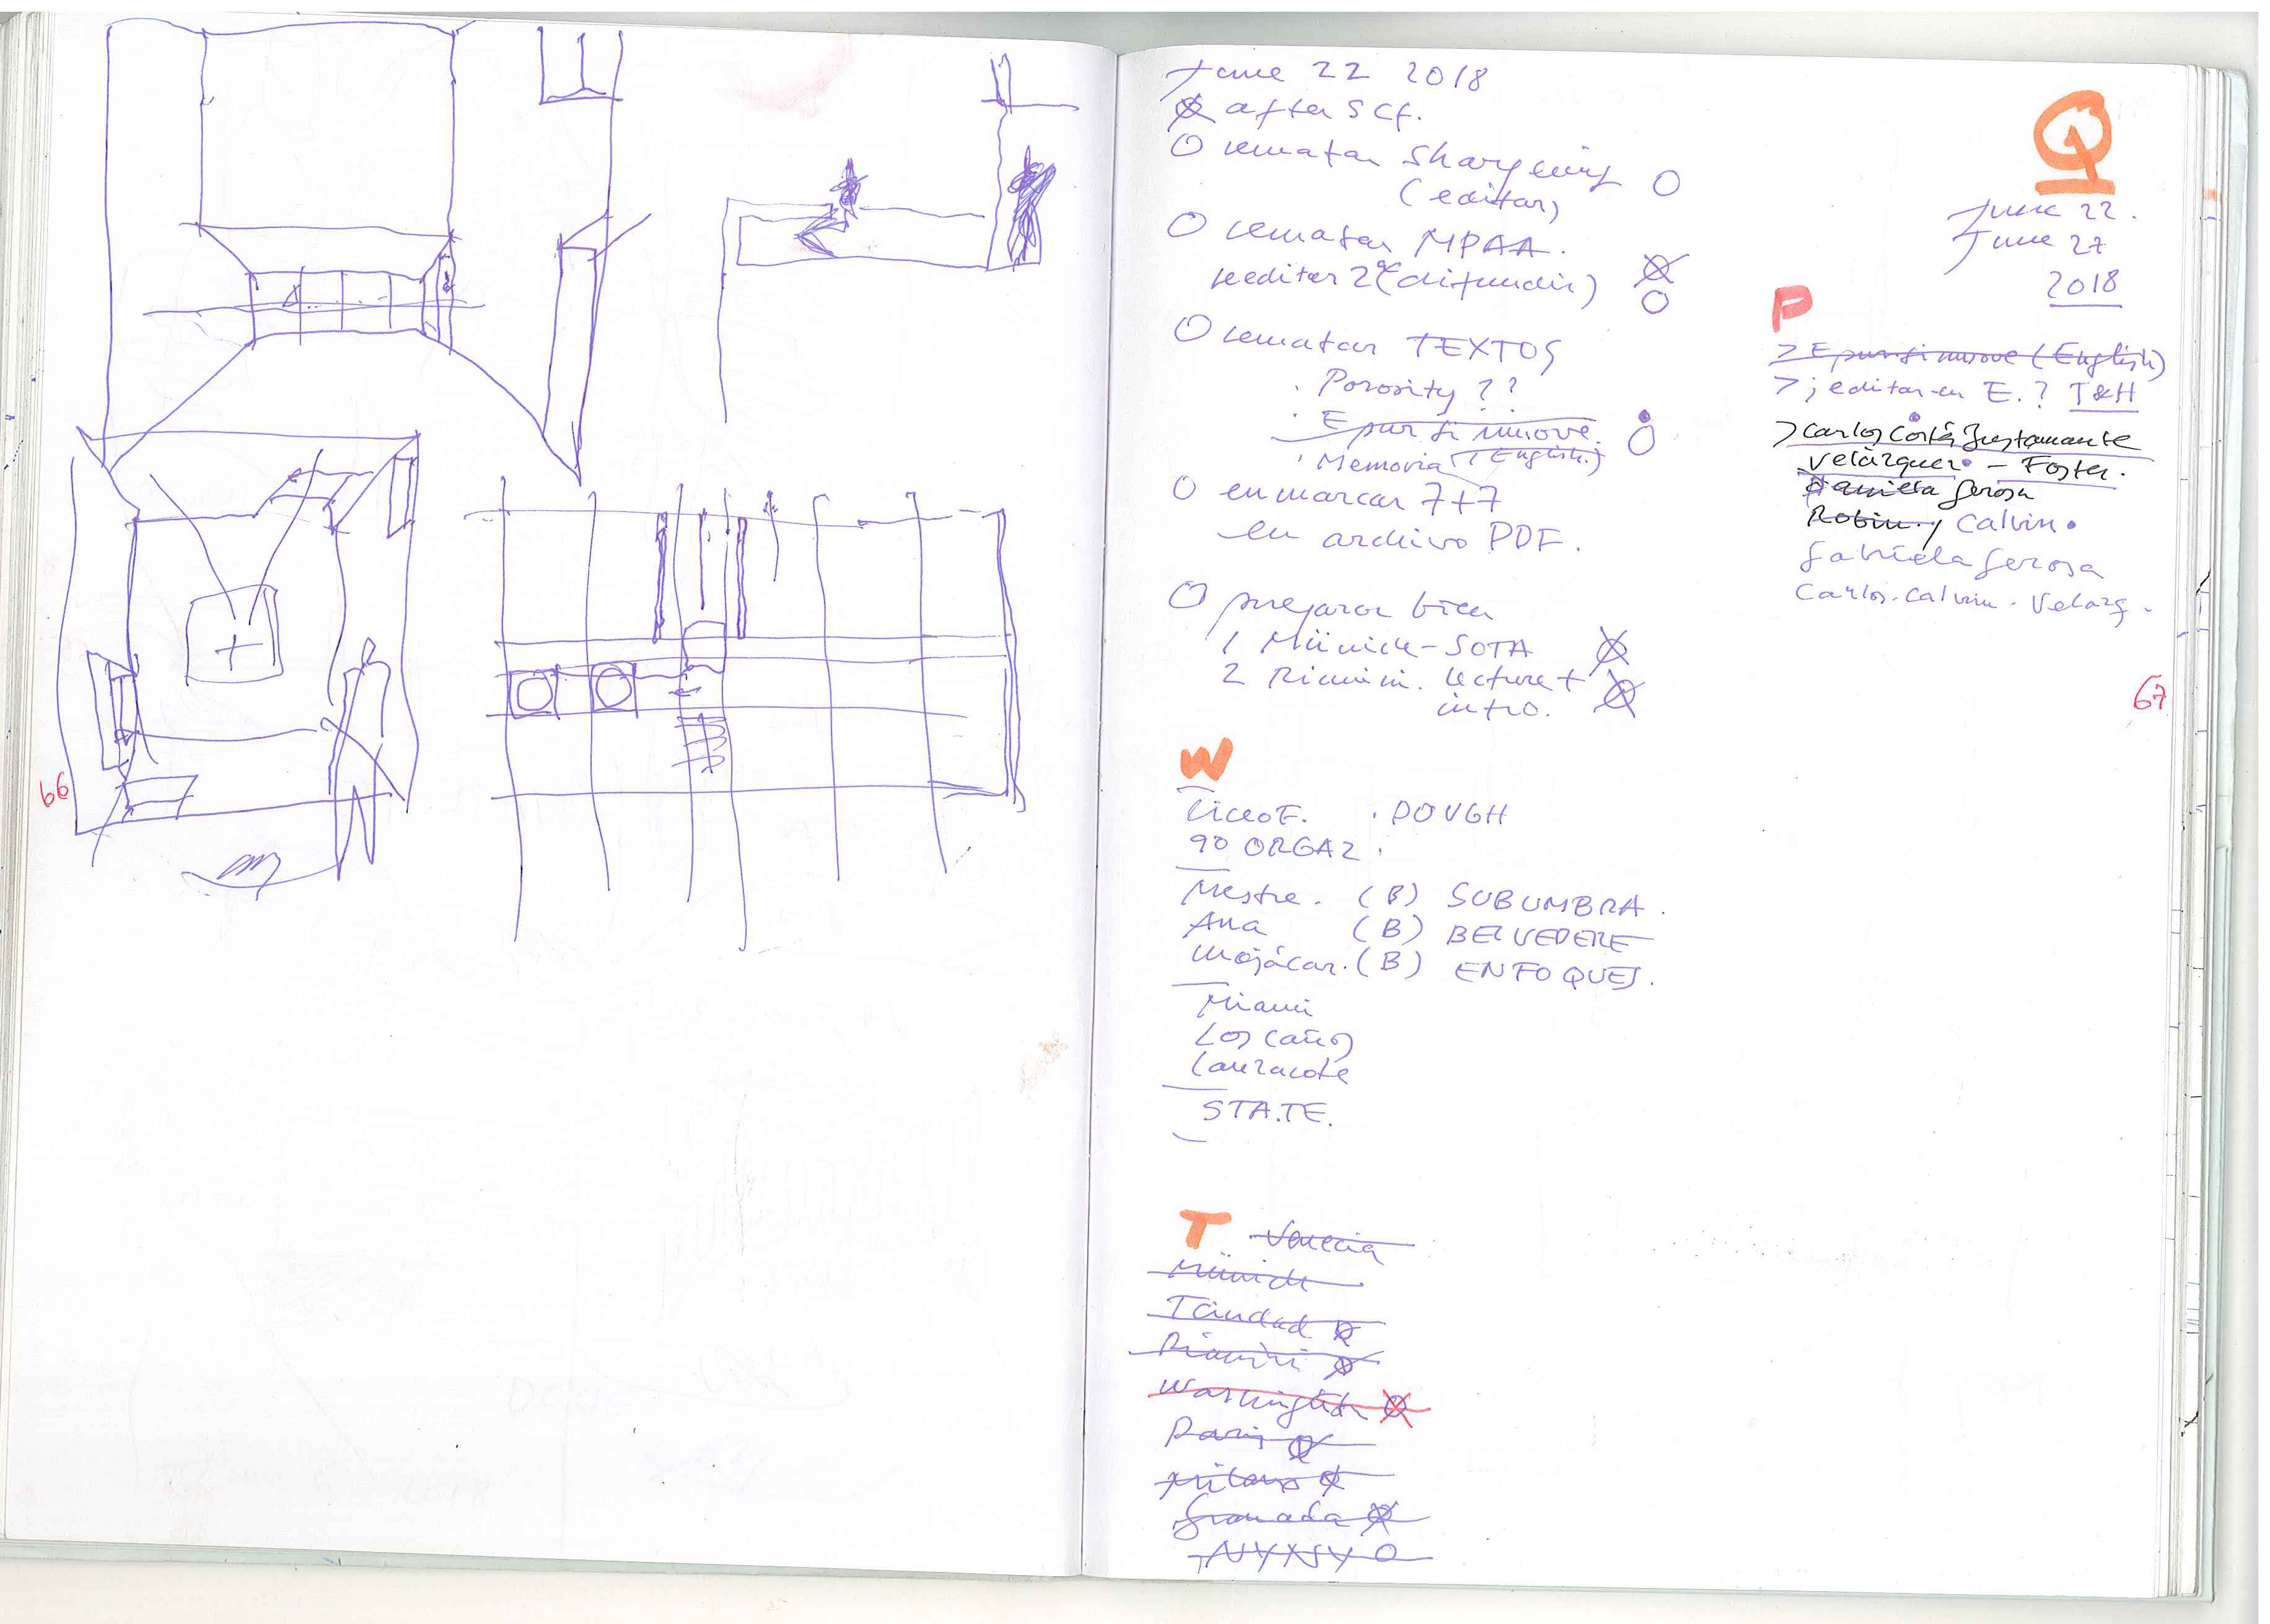 66
June 22 2018
after SCf.
rematar Sharpening
(editar)
rematar MPAA.
reeditar 2ª (difundir)
rematar TEXTOS
. Porosity ??
. E pur si muove.
. Memoria (English)
enmarcar 7+7
en archivo PDF.
preparar bien
1 Münich-SOTA
2 Rimini. lecture +
intro.
W
Liceo F. . DOUGH
90 ORGAZ .
Mestre. (B) SUBUMBRA.
Ana (B) BELVEDERE
Mojácar. (B) ENFOQUES.
Miami
Los Caños
Lanzarote
STA.TE.
T Venecia
Münich
Rimini
Washington
Paris
Milano
Granada
NYNY
Q
June 22.
June 27
2018
P
> E pur si muove (English)
> ; editar en E. ? T&H
> Carlos Costa Bustamante
Velázquez - Foster.
Gerosa
Robin, Calvin.
Gabriela Gerosa
Carlos. Calvin. Velazq.
67